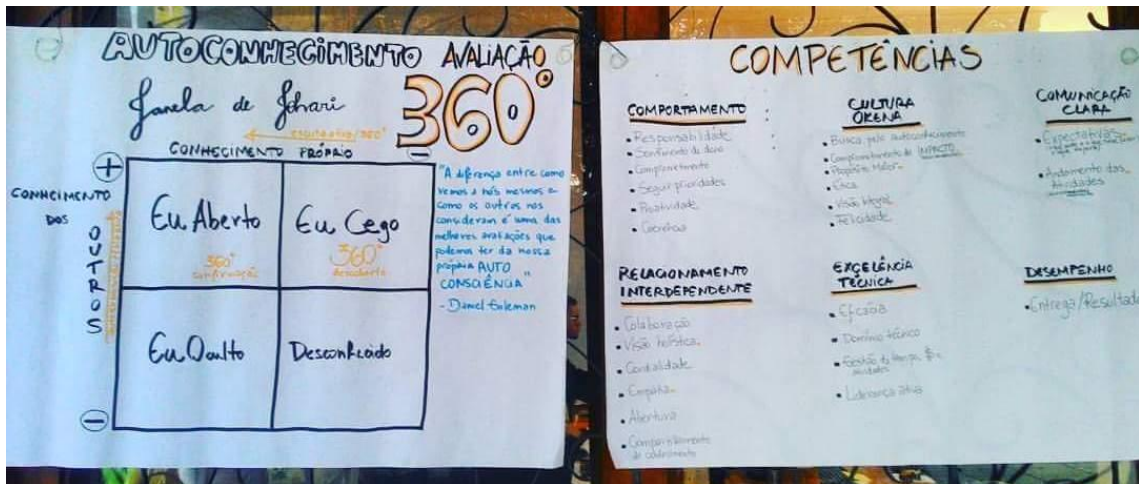 AUTOCONHECIMENTO
AVALIAÇÃO
360°
Janela de Johari
CONHECIMENTO PRÓPRIO
+
−
CONHECIMENTO
DOS
OUTROS
−
Eu Aberto
360°
confirmação
Eu Cego
360°
descoberta
Eu Oculto
Desconhecido
"A diferença entre como
vemos a nós mesmos e
como os outros nos
consideram é uma das
melhores avaliações que
podemos ter da nossa
própria AUTO
CONSCIÊNCIA"
- Daniel Goleman
COMPETÊNCIAS
COMPORTAMENTO
• Responsabilidade
• Sentimento de dono
• Comprometimento
• Seguir prioridades
• Proatividade
• Coerência
CULTURA
OKENA
• Busca pelo autoconhecimento
• Comprometimento de IMPACTO
• Propósito Maior
• Ética
• Visão Integral
• Felicidade
COMUNICAÇÃO
CLARA
• Expectativa
• Andamento das
Atividades
RELACIONAMENTO
INTERDEPENDENTE
• Colaboração
• Visão holística
• Cordialidade
• Empatia
• Abertura
• Compartilhamento
de conhecimento
EXCELÊNCIA
TÉCNICA
• Eficácia
• Domínio técnico
• Gestão do tempo, $ e
• Liderança ativa
DESEMPENHO
• Entrega/Resultado